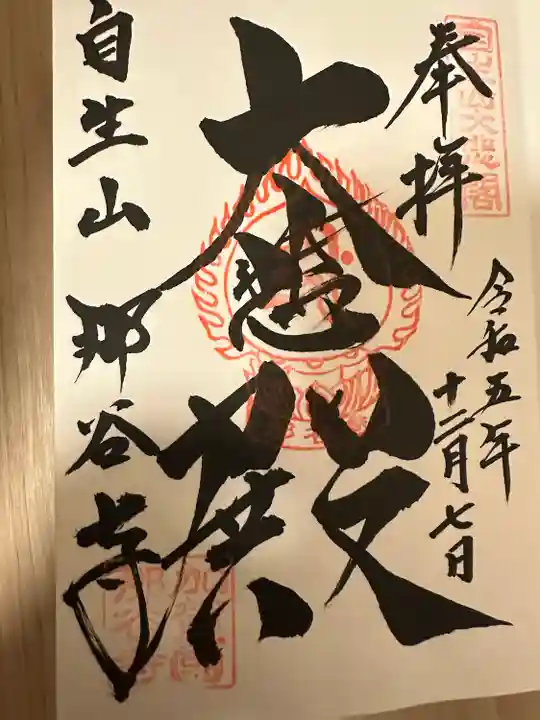 奉拝
令和五年
十二月七日
大悲殿
自生山 那谷寺